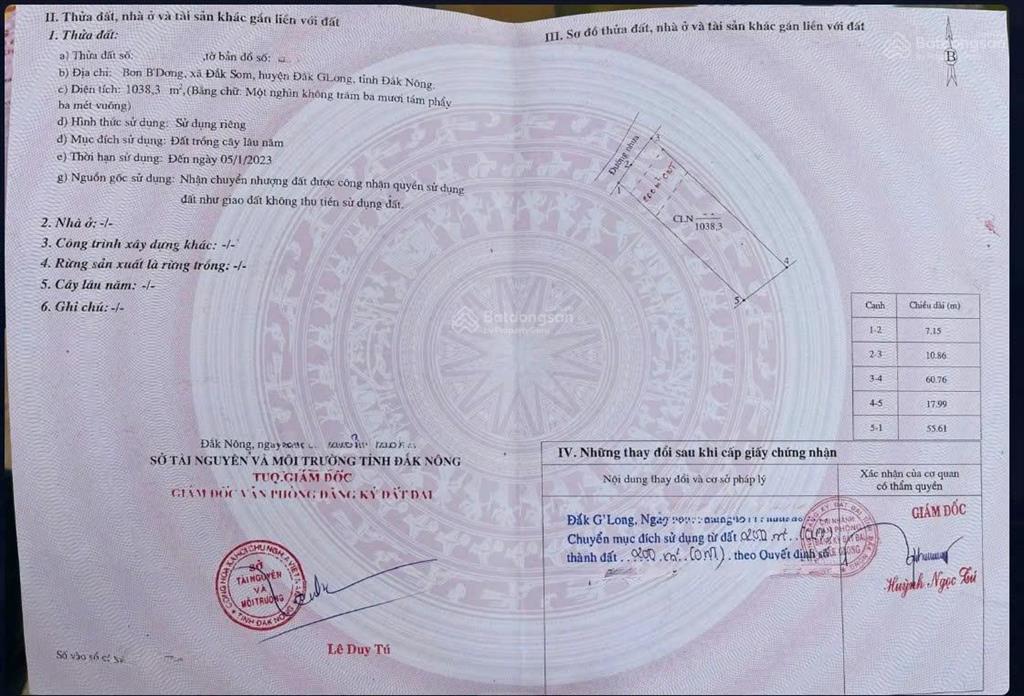 II. Thửa đất, nhà ở và tài sản khác gắn liền với đất
1. Thửa đất:
a) Thửa đất số: ,tờ bản đồ số:
b) Địa chỉ: Bon B'Dơng, xã Đắk Som, huyện Đăk GLong, tỉnh Đắk Nông.
c) Diện tích: 1038,3 m²,(Bằng chữ: Một nghìn không trăm ba mươi tám phẩy
ba mét vuông)
d) Hình thức sử dụng: Sử dụng riêng
đ) Mục đích sử dụng: Đất trồng cây lâu năm
e) Thời hạn sử dụng: Đến ngày 05/1/2023
g) Nguồn gốc sử dụng: Nhận chuyển nhượng đất được công nhận quyền sử dụng
đất như giao đất không thu tiền sử dụng đất.
2. Nhà ở: -/-
3. Công trình xây dựng khác: -/-
4. Rừng sản xuất là rừng trồng: -/-
5. Cây lâu năm: -/-
6. Ghi chú: -/-
Đắk Nông, ngày
SỞ TÀI NGUYÊN VÀ MÔI TRƯỜNG TỈNH ĐẮK NÔNG
TUQ.GIÁM ĐỐC
GIÁM ĐỐC VĂN PHÒNG ĐĂNG KÝ ĐẤT ĐAI
CỘNG HÒA XÃ HỘI CHỦ NGHĨA VIỆT NAM
SỞ
TÀI NGUYÊN
VÀ
MÔI TRƯỜNG
TỈNH ĐẮK NÔNG
Lê Duy Tú
Số vào sổ
III. Sơ đồ thửa đất, nhà ở và tài sản khác gắn liền với đất
Batdongsan
B
Đường nhựa
3
2
1
CLN
1038,3
4
5
Cạnh Chiều dài (m)
1-2 7.15
2-3 10.86
3-4 60.76
4-5 17.99
5-1 55.61
Batdongsan
by PropertyGuru
IV. Những thay đổi sau khi cấp giấy chứng nhận
Nội dung thay đổi và cơ sở pháp lý
Xác nhận của cơ quan
có thẩm quyền
Đắk G'Long, Ngày
Chuyển mục đích sử dụng từ đất 200 m²
thành đất 200 m² theo Quyết định số
GIÁM ĐỐC
Huỳnh Ngọc Tú